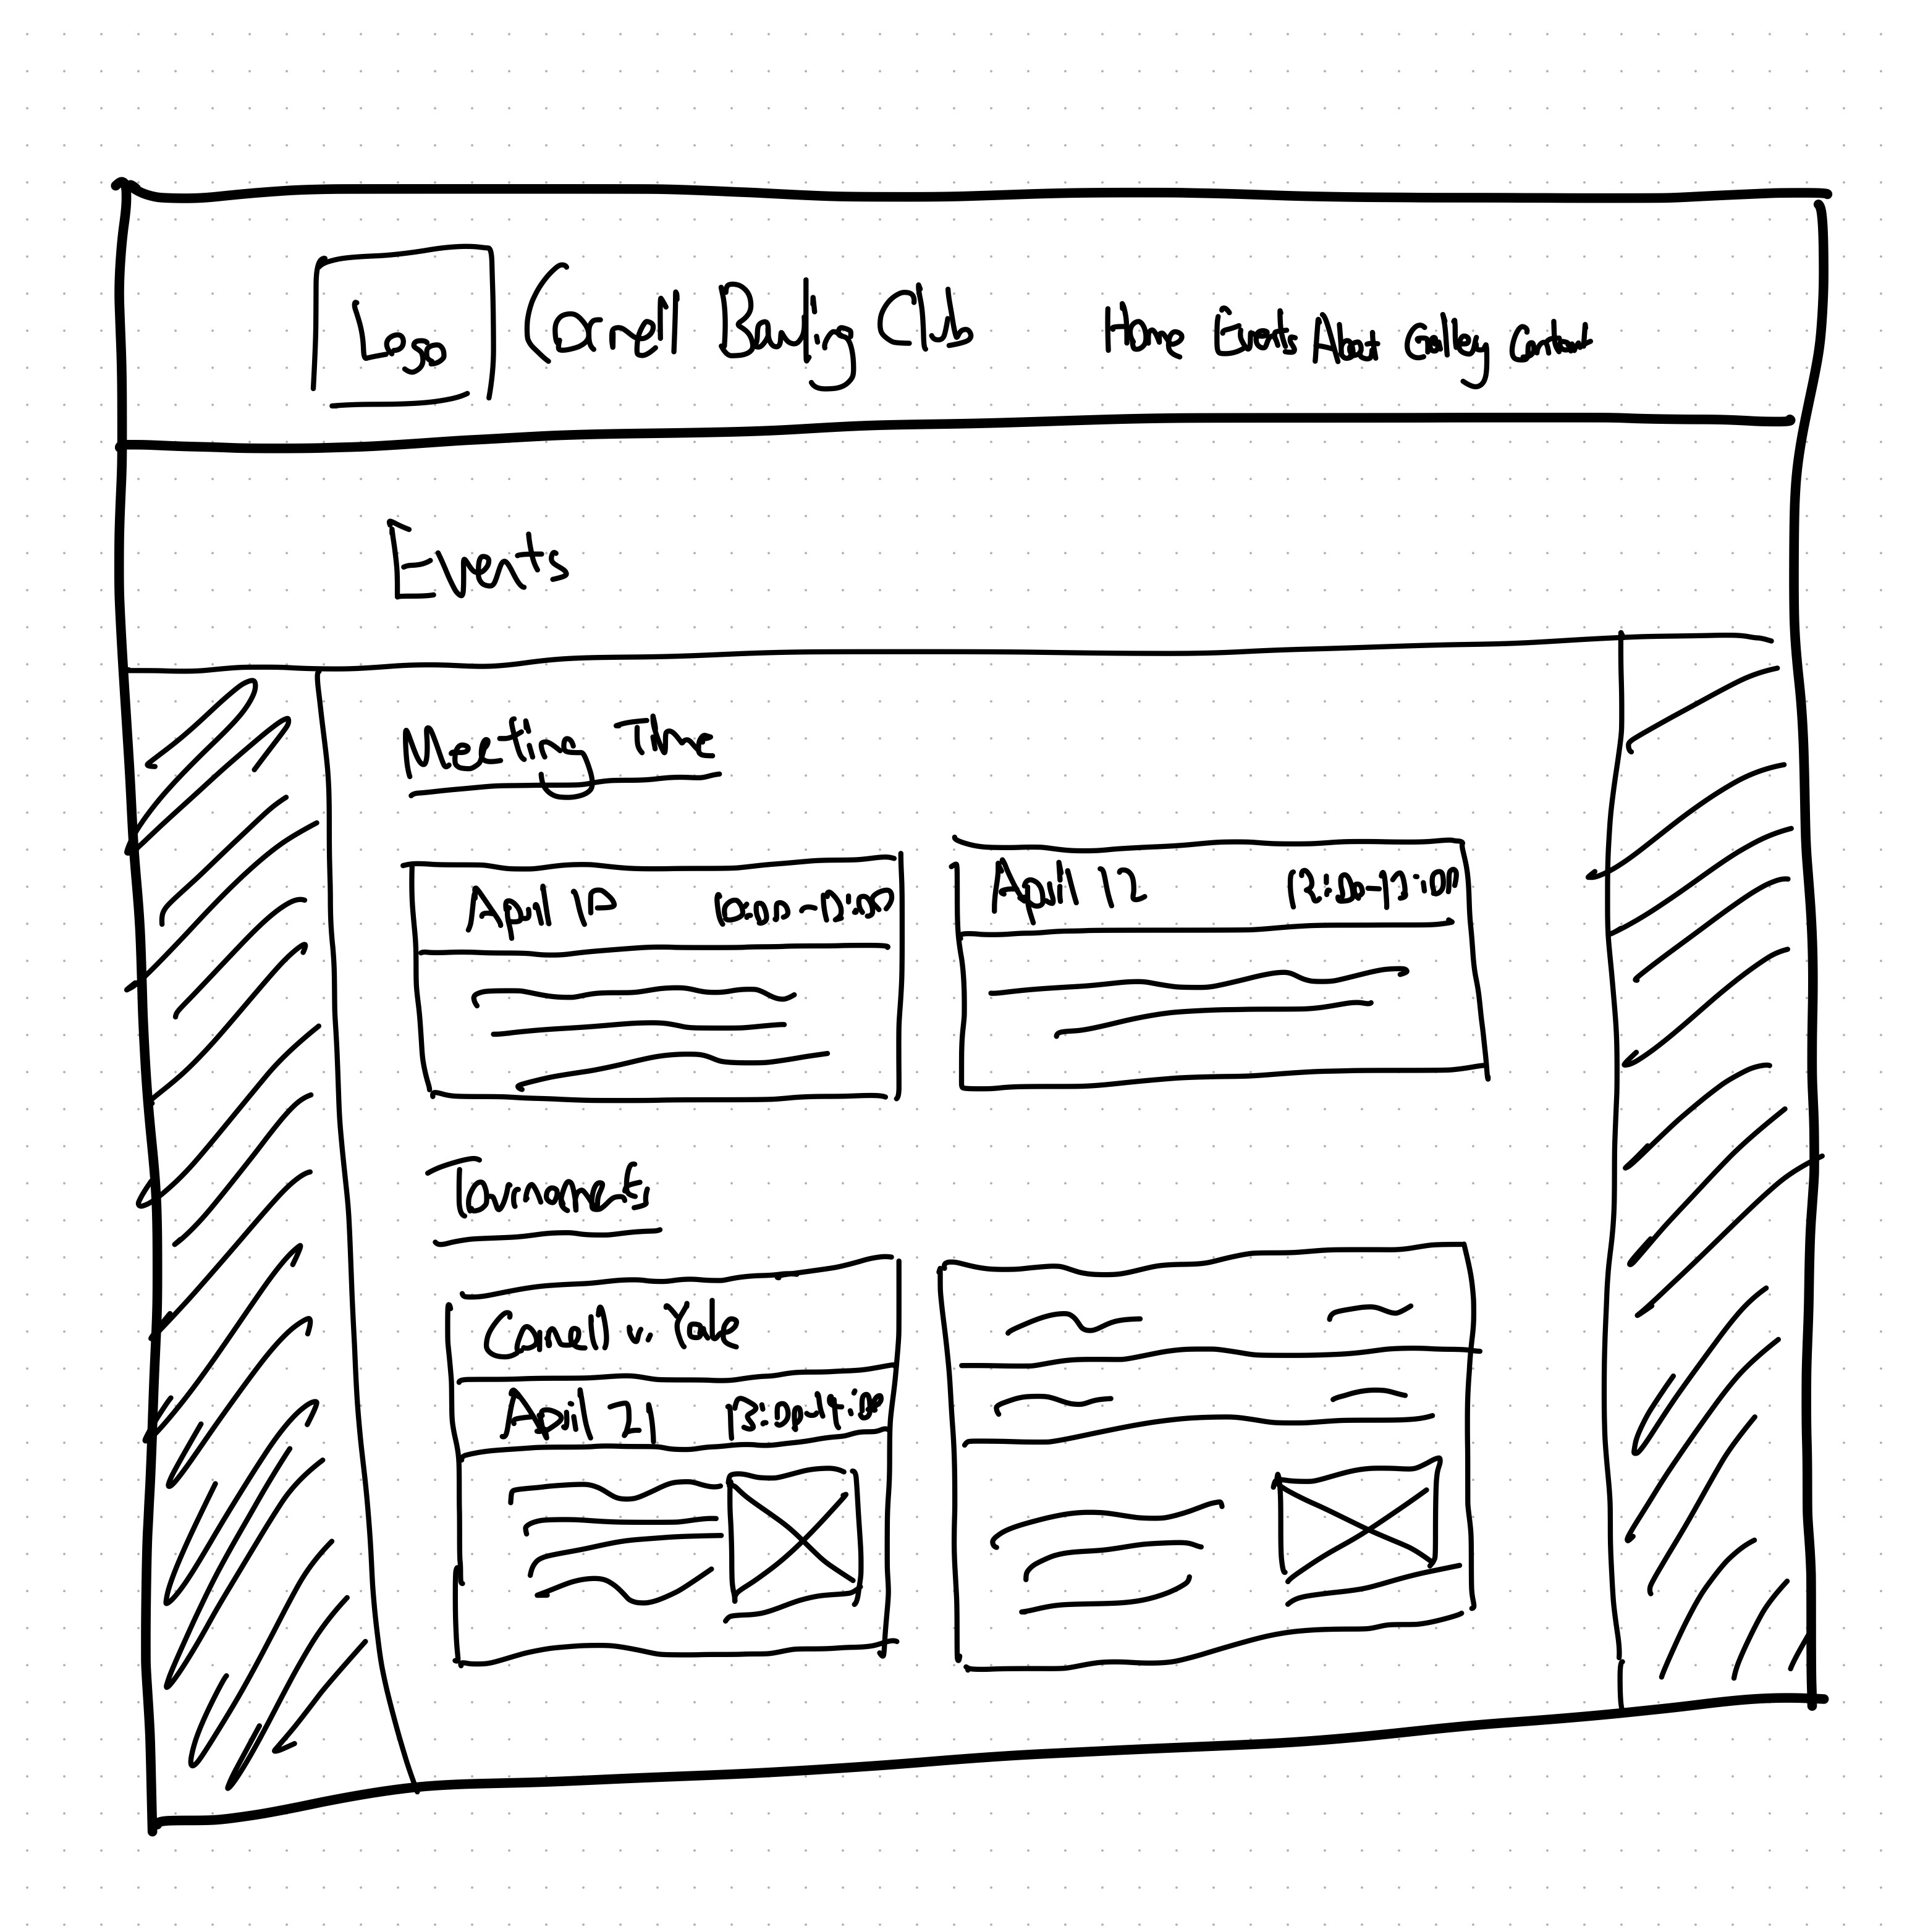 Logo
Cornell Bowling Club
Home Events About Gallery Contact
Events
Meeting Time
April
April 12
Tournaments
Cornell vs. Yale
April 21